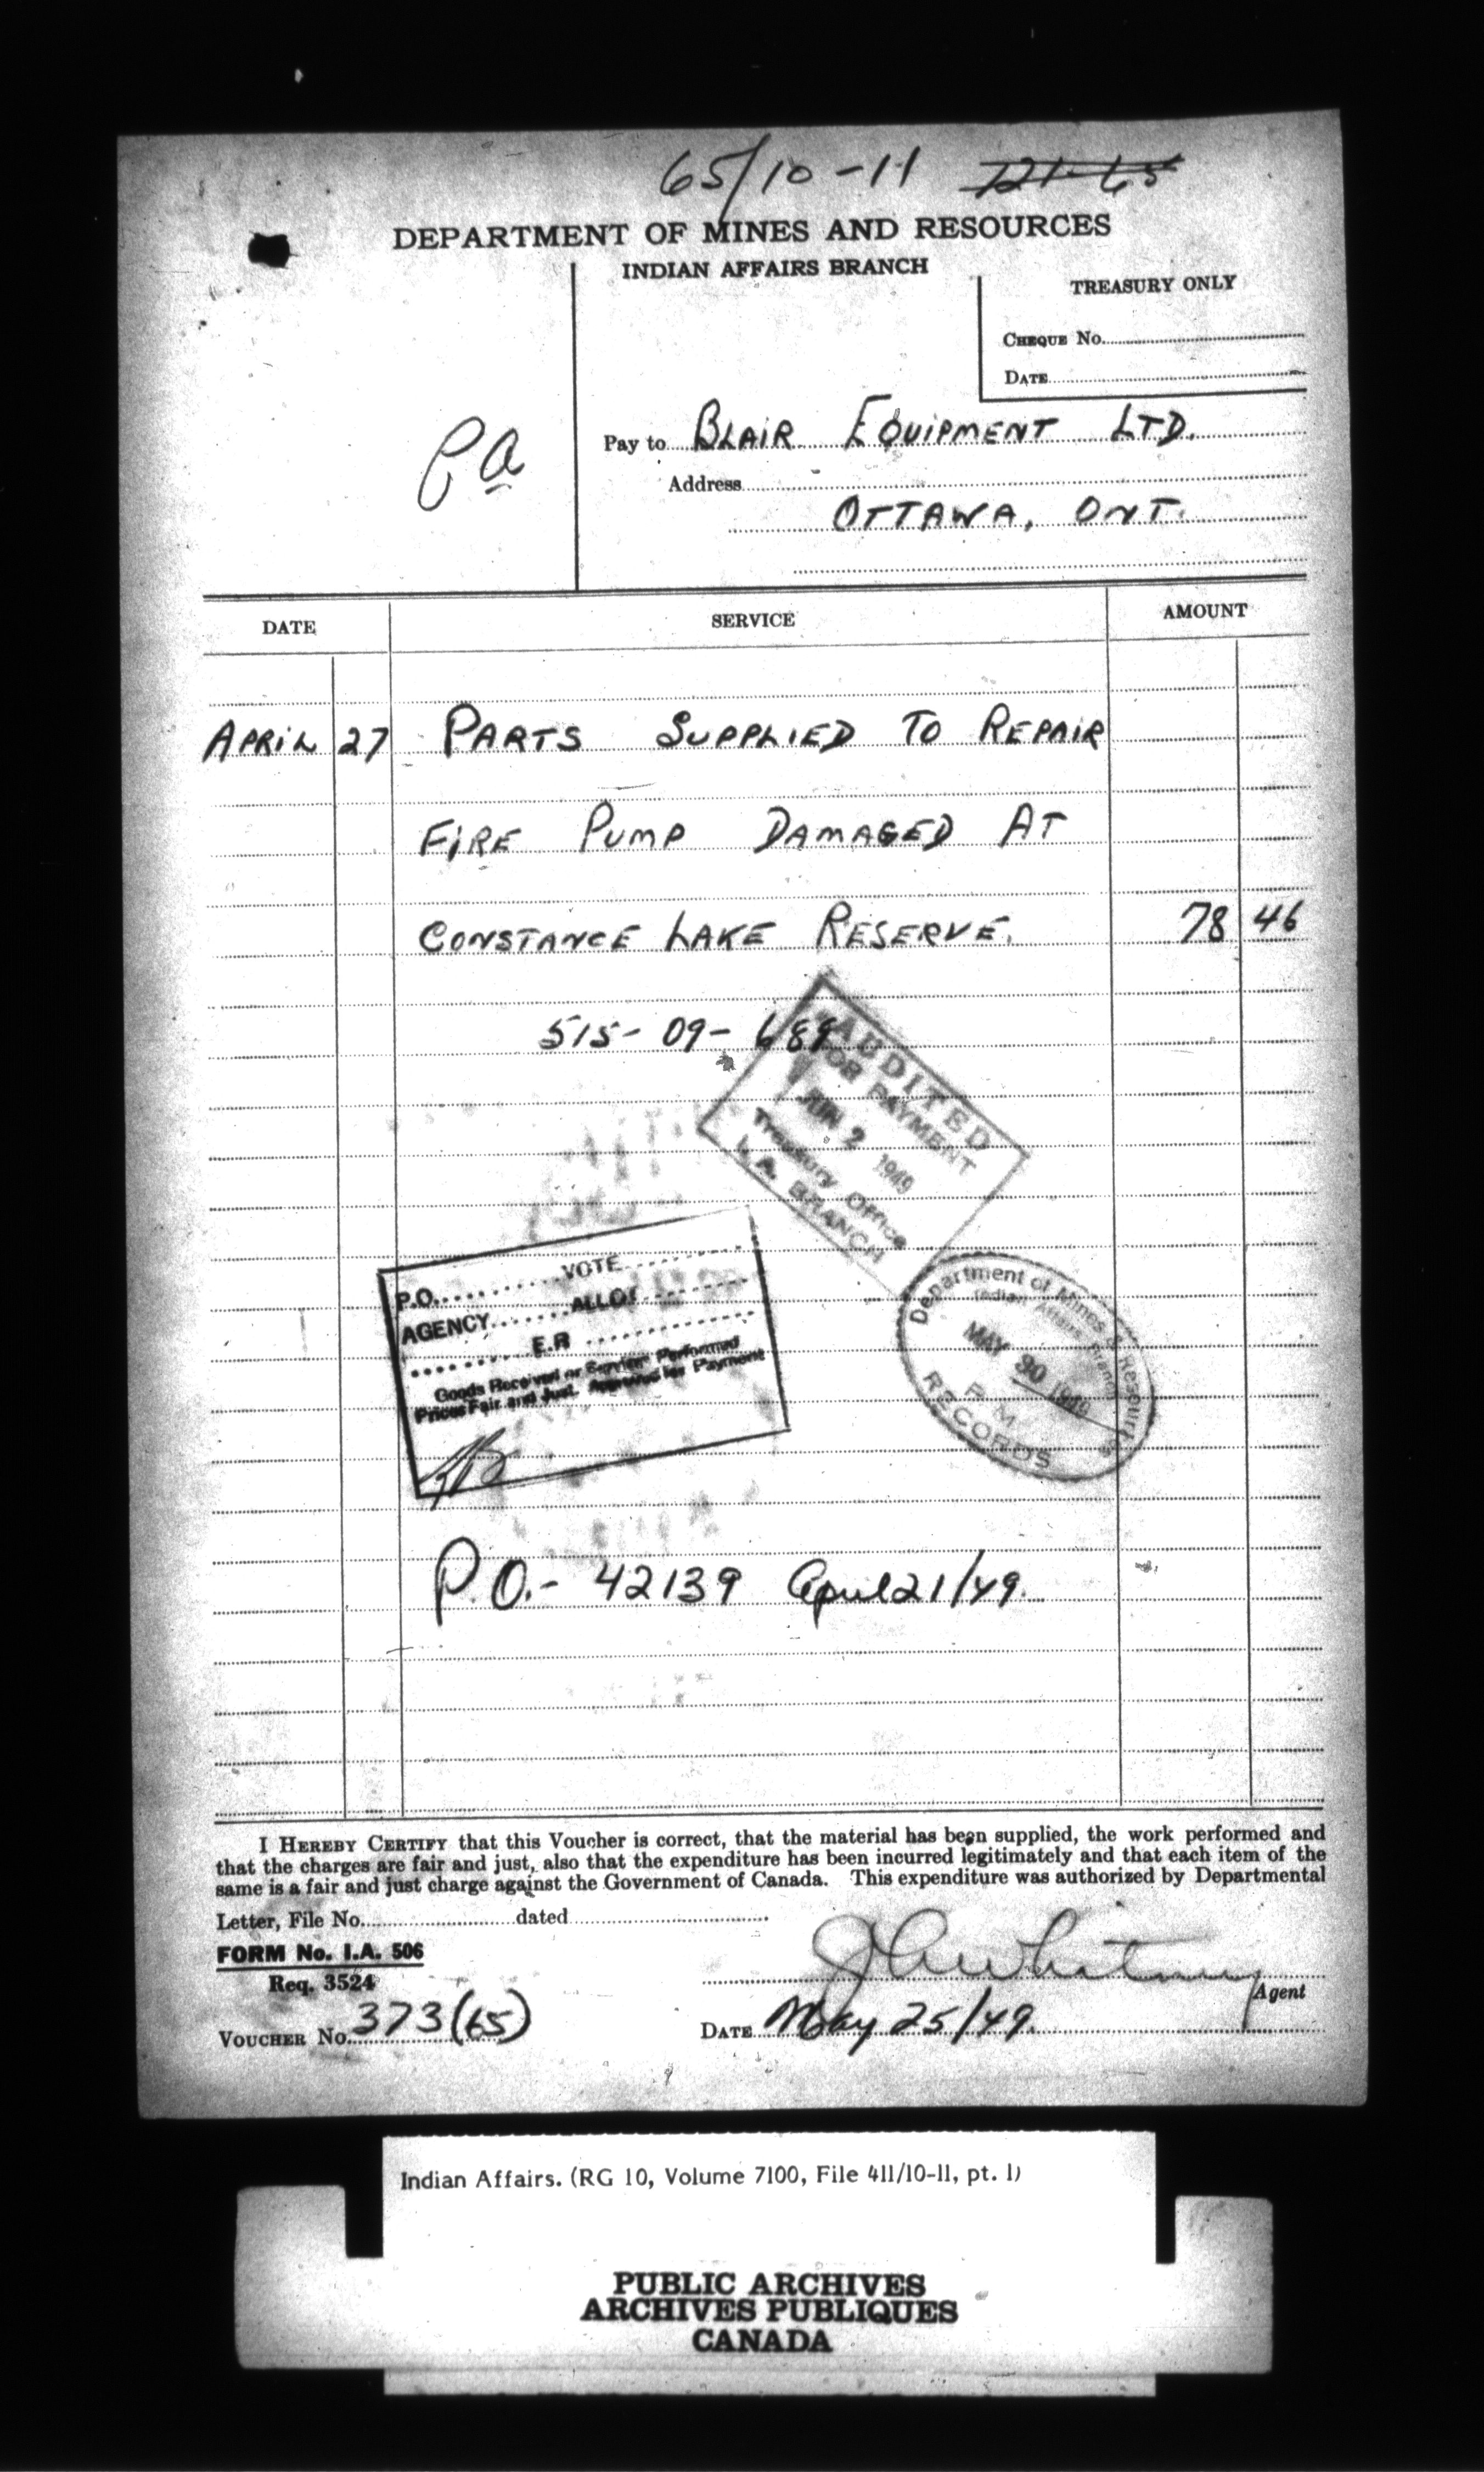 65/10-11 121-65
DEPARTMENT OF MINES AND RESOURCES
INDIAN AFFAIRS BRANCH
TREASURY ONLY
CHEQUE No.
DATE
Pa
Pay to BLAIR EQUIPMENT LTD.
Address
OTTAWA, ONT.
DATE SERVICE AMOUNT
APRIL 27 PARTS SUPPLIED TO REPAIR
FIRE PUMP DAMAGED AT
CONSTANCE LAKE RESERVE. 78 46
515-09-689
AUDITED
FOR PAYMENT
JUN 2 1949
Treasury Office
I.A. BRANCH
P.O. VOTE
AGENCY ALLOT
E.R
Goods Received or Services Performed
Prices Fair and Just. Approved for Payment
Department of Mines & Resources
Indian Affairs Branch
MAY 30 1949
P.M.
RECORDS
P.O.- 42139 April 21/49.
I HEREBY CERTIFY that this Voucher is correct, that the material has been supplied, the work performed and
that the charges are fair and just, also that the expenditure has been incurred legitimately and that each item of the
same is a fair and just charge against the Government of Canada. This expenditure was authorized by Departmental
Letter, File No. dated
FORM No. I.A. 506
Req. 3524
Agent
VOUCHER No. 373(65)
DATE May 25/49.
Indian Affairs. (RG 10, Volume 7100, File 411/10-11, pt. 1)
PUBLIC ARCHIVES
ARCHIVES PUBLIQUES
CANADA